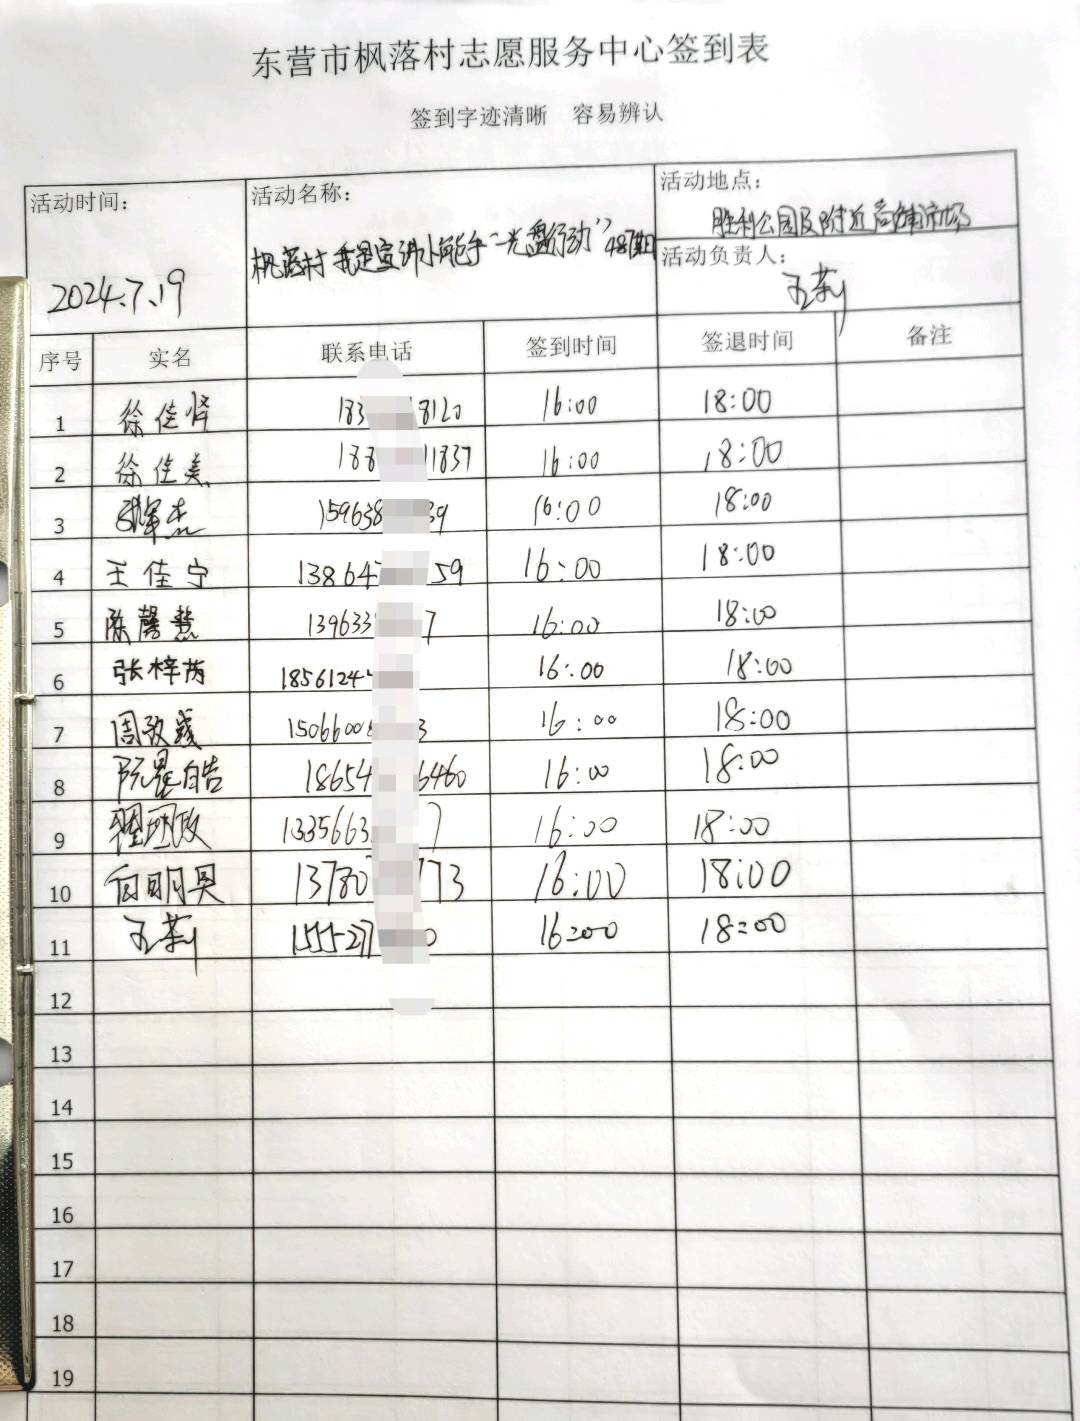 东营市枫落村志愿服务中心签到表
签到字迹清晰 容易辨认
活动时间: 2024.7.19
活动名称: 枫落村我是宣讲小能手“光盘行动”487期
活动地点: 胜利公园及附近商铺市场
活动负责人: 王莉
序号 实名 联系电话 签到时间 签退时间 备注
1 徐佳怿 183 8120 16:00 18:00
2 徐佳美 188 1837 16:00 18:00
3 159638 39 16:00 18:00
4 王佳宁 13864 59 16:00 18:00
5 陈馨慧 139633 7 16:00 18:00
6 张梓芮 1856124 16:00 18:00
7 周 1506600 3 16:00 18:00
8 阮星皓 18654 6460 16:00 18:00
9 133566 7 16:00 18:00
10 向明昊 13780 773 16:00 18:00
11 王莉 155527 0 16:00 18:00
12
13
14
15
16
17
18
19